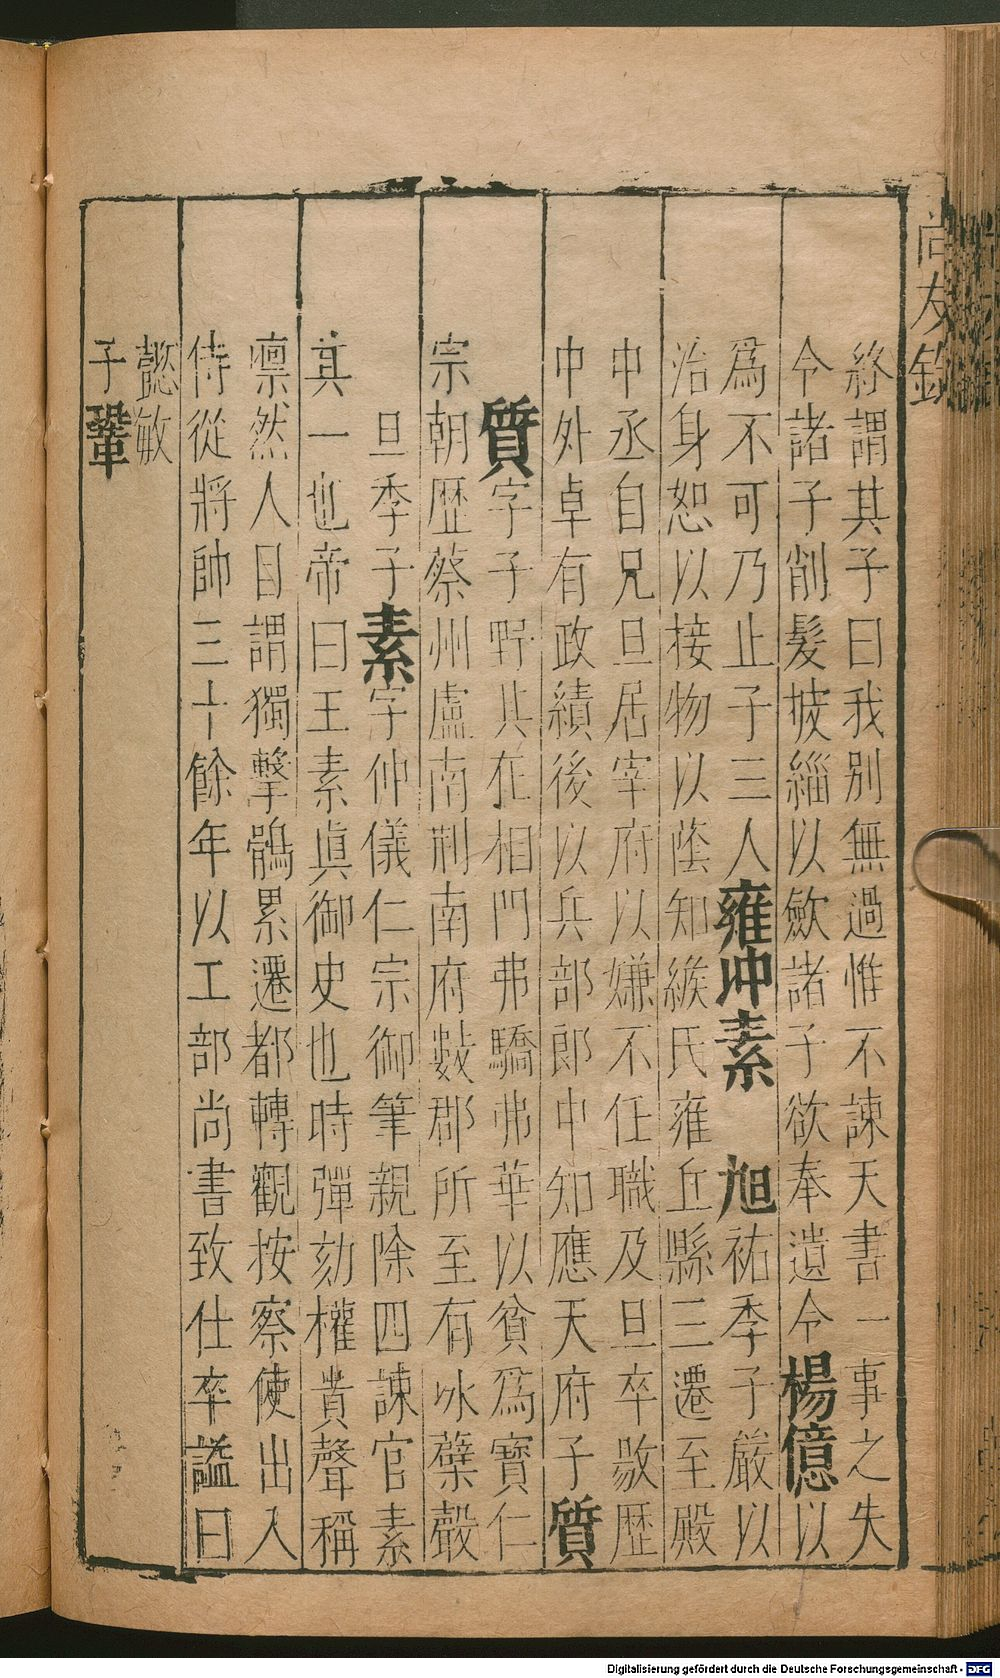 尚友錄
終謂其子曰我別無過惟不諫天書一事之失
令諸子削髮披緇以斂諸子欲奉遺令楊億以
爲不可乃止子三人雍冲素　旭祐季子嚴以
治身恕以接物以蔭知緱氏雍丘縣三遷至殿
中丞自兄旦居宰府以嫌不任職及旦卒敭歷
中外卓有政績後以兵部郎中知應天府子質
質字子野其在相門弗驕弗華以貧爲寶仁
宗朝歷蔡州盧南荆南府數郡所至有冰蘖聲
旦季子素字仲儀仁宗御筆親除四諫官素
其一也帝曰王素眞御史也時彈劾權貴聲稱
凛然人目謂獨擊鶻累遷都轉觀按察使出入
侍從將帥三十餘年以工部尚書致仕卒謚曰
懿敏
子鞏
Digitalisierung gefördert durch die Deutsche Forschungsgemeinschaft - DFG